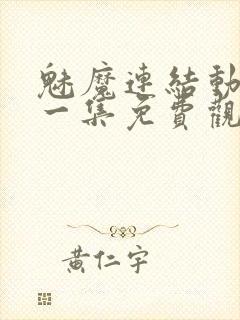 魅魔連結動
一集免費觀
黃仁宇